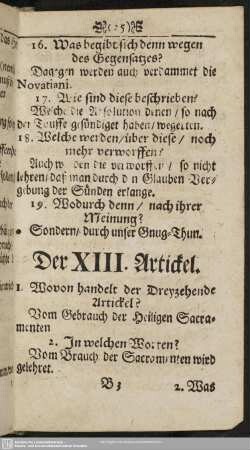 16. Was begibt sich denn wegen
des Gegensatzes?
Dagegen werden auch verdammet die
Novatiani.
17. Wie sind diese beschrieben?
Welche die Absolution denen / so nach
der Tauffe gesündiget haben / wegerten.
18. Welche werden / über diese / noch
mehr verworffen?
Auch werden die verworffen / so nicht
lehren / daß man durch den Glauben Ver-
gebung der Sünden erlange.
19. Wodurch denn / nach ihrer
Meinung?
Sondern / durch unser Gnug-Thun.
Der XIII. Artickel.
1. Wovon handelt der Dreyzehende
Artickel?
Vom Gebrauch der Heiligen Sacra-
menten
2. In welchen Worten?
Vom Brauch der Sacramenten wird
gelehret.
B3 2. Was